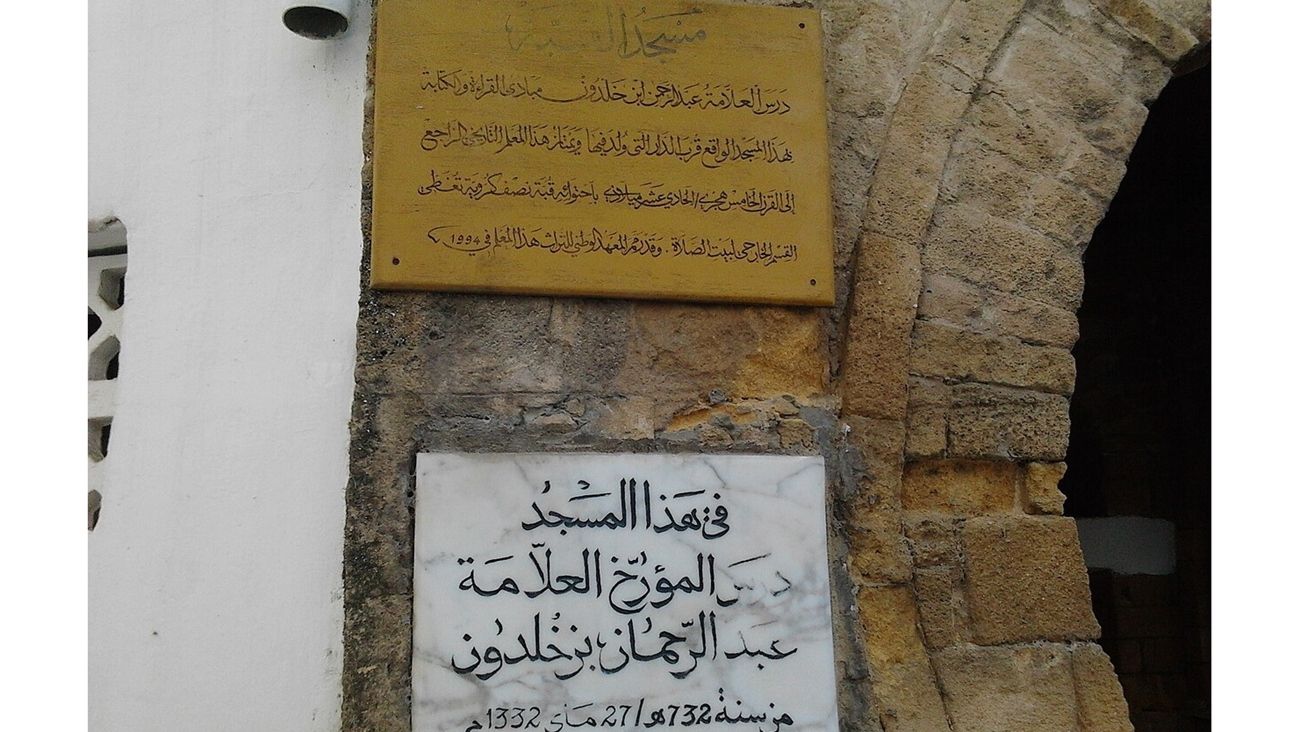 مسجد القبة
درس العلامة عبد الرحمن ابن خلدون مبادئ القراءة والكتابة
بهذا المسجد الواقع قرب الدار التي ولد فيها ويمتاز هذا المعلم التاريخي الراجع
إلى القرن الخامس هجري / الحادي عشر ميلادي باحتوائه قبة نصف كروية تغطي
القسم الخارجي لبيت الصلاة . وقد رمم المعهد الوطني للتراث هذا المعلم في 1994
في هذا المسجد
درس المؤرّخ العلاّمة
عبد الرّحمان بن خُلدون
من سنة 732هـ / 27 ماي 1332م